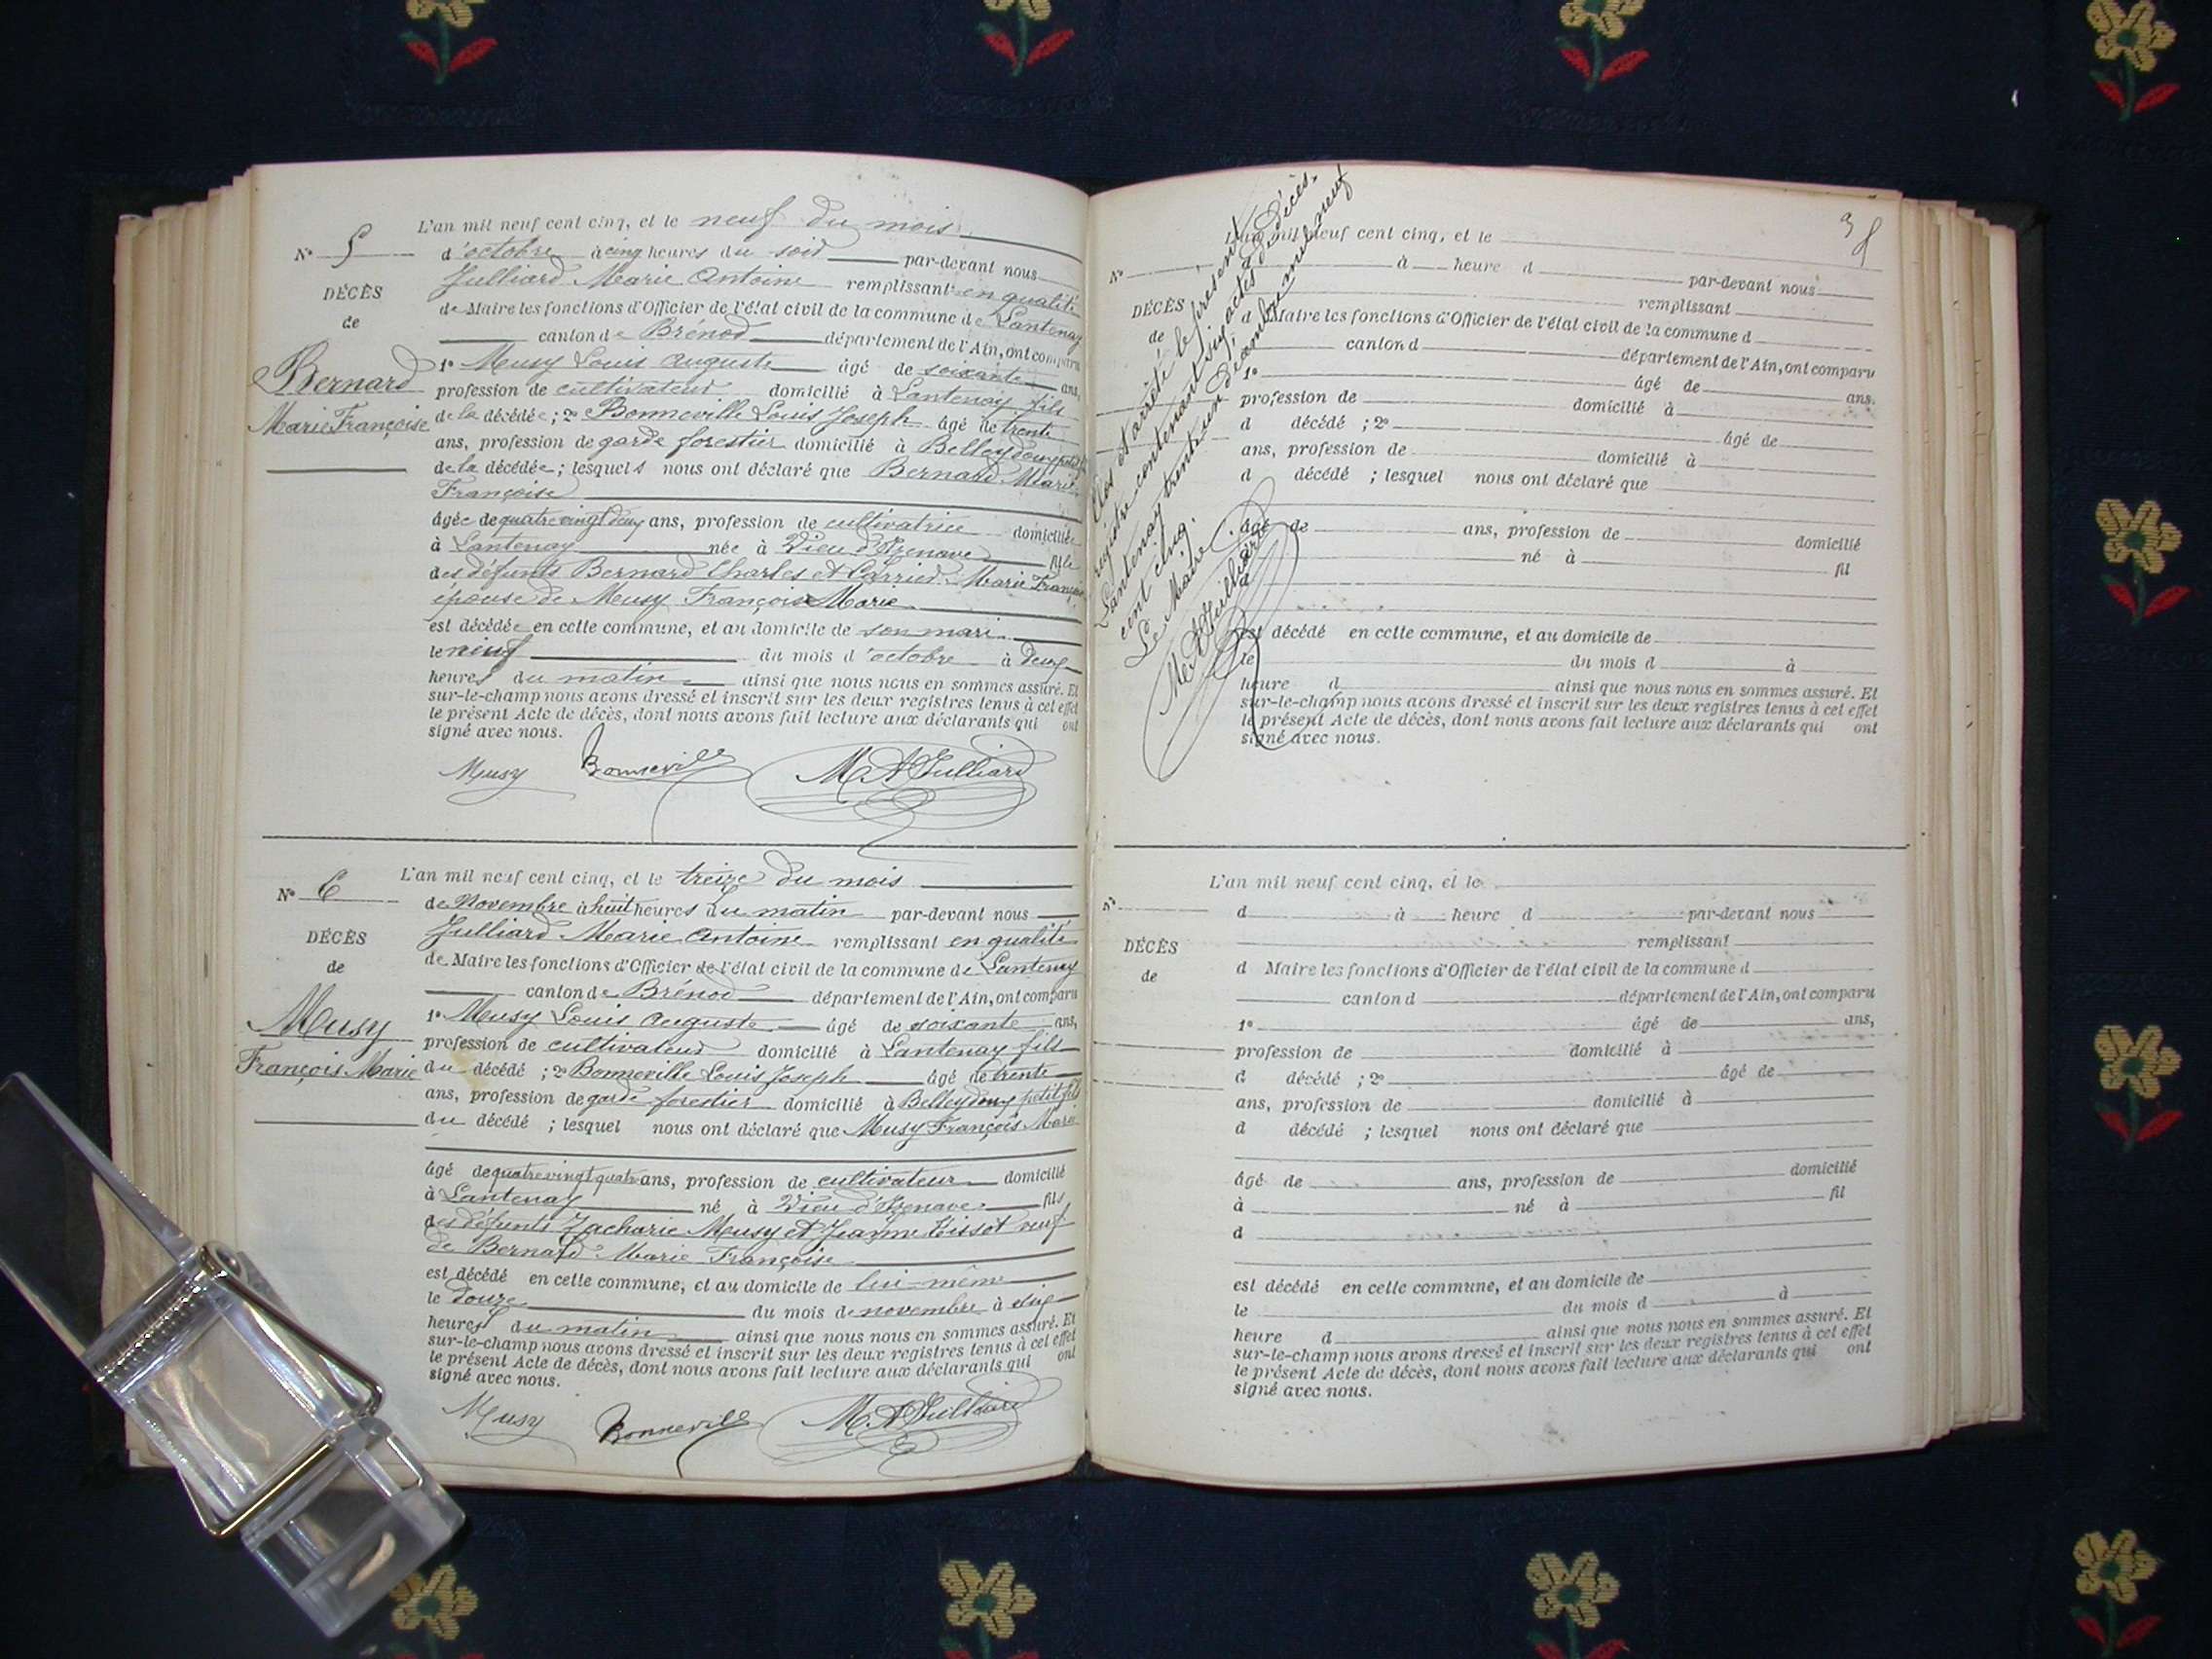 L'an mil neuf cent cinq, et le neuf du mois
N° 5
d'octobre à cinq heures du soir par-devant nous
Julliard Marie Antoine remplissant en qualité
DÉCÈS
de Maire les fonctions d'Officier de l'état civil de la commune de Lantenay
de
canton de Brénod département de l'Ain, ont comparu
1° Musy Louis Auguste âgé de soixante ans,
Bernard
profession de cultivateur domicilié à Lantenay fils
Marie Françoise
de la décédée ; 2° Bonneville Louis Joseph âgé de trente
ans, profession de garde forestier domicilié à Belleydoux petit fils
de la décédée ; lesquels nous ont déclaré que Bernard Marie
Françoise
âgée de quatre vingt deux ans, profession de cultivatrice domiciliée
à Lantenay née à Vieu d'Izenave fille
des défunts Bernard Charles et Carrier Marie Françoise
épouse de Musy François Marie
est décédée en cette commune, et au domicile de son mari
le neuf du mois d'octobre à deux
heures du matin ainsi que nous nous en sommes assuré. Et
sur-le-champ nous avons dressé et inscrit sur les deux registres tenus à cet effet
le présent Acte de décès, dont nous avons fait lecture aux déclarants qui ont
signé avec nous.
Musy Bonneville M A Julliard
L'an mil neuf cent cinq, et le treize du mois
N° 6
de Novembre à huit heures du matin par-devant nous
Julliard Marie Antoine remplissant en qualité
DÉCÈS
de Maire les fonctions d'Officier de l'état civil de la commune de Lantenay
de
canton de Brénod département de l'Ain, ont comparu
1° Musy Louis Auguste âgé de soixante ans,
Musy
profession de cultivateur domicilié à Lantenay fils
François Marie
du décédé ; 2° Bonneville Louis Joseph âgé de trente
ans, profession de garde forestier domicilié à Belleydoux petit fils
du décédé ; lesquel nous ont déclaré que Musy François Marie
âgé de quatre vingt quatre ans, profession de cultivateur domicilié
à Lantenay né à Vieu d'Izenave fils
des défunts Zacharie Musy et Jeanne Tissot veuf
de Bernard Marie Françoise
est décédé en cette commune, et au domicile de lui-même
le douze du mois de novembre à six
heures du matin ainsi que nous nous en sommes assuré. Et
sur-le-champ nous avons dressé et inscrit sur les deux registres tenus à cet effet
le présent Acte de décès, dont nous avons fait lecture aux déclarants qui ont
signé avec nous.
Musy Bonneville M A Julliard
Clos et arrêté le présent
registre contenant six actes de décès.
Lantenay trente un Décembre mil neuf
cent cinq.
Le Maire
M A Julliard
L'an mil neuf cent cinq, et le
N°
d à heure d par-devant nous
remplissant
DÉCÈS
d Maire les fonctions d'Officier de l'état civil de la commune d
de
canton d département de l'Ain, ont comparu
1° âgé de ans.
profession de domicilié à
d décédé ; 2° âgé de
ans, profession de domicilié à
d décédé ; lesquel nous ont déclaré que
âgé de ans, profession de domicilié
à né à fil
d
est décédé en cette commune, et au domicile de
le du mois d à
heure d ainsi que nous nous en sommes assuré. Et
sur-le-champ nous avons dressé et inscrit sur les deux registres tenus à cet effet
le présent Acte de décès, dont nous avons fait lecture aux déclarants qui ont
signé avec nous.
L'an mil neuf cent cinq, et le
N°
d à heure d par-devant nous
remplissant
DÉCÈS
d Maire les fonctions d'Officier de l'état civil de la commune d
de
canton d département de l'Ain, ont comparu
1° âgé de ans,
profession de domicilié à
d décédé ; 2° âgé de
ans, profession de domicilié à
d décédé ; lesquel nous ont déclaré que
âgé de ans, profession de domicilié
à né à fil
d
est décédé en cette commune, et au domicile de
le du mois d à
heure d ainsi que nous nous en sommes assuré. Et
sur-le-champ nous avons dressé et inscrit sur les deux registres tenus à cet effet
le présent Acte de décès, dont nous avons fait lecture aux déclarants qui ont
signé avec nous.